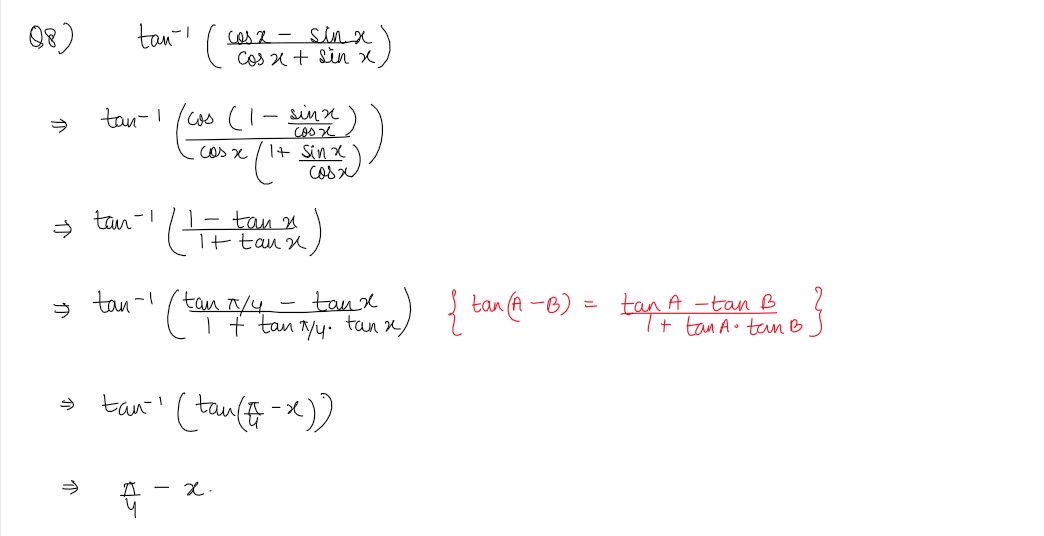 Q8) tan⁻¹ ( (cos x − sin x) / (cos x + sin x) )
⇒ tan⁻¹ ( cos (1 − sin x / cos x) / cos x (1 + sin x / cos x) )
⇒ tan⁻¹ ( (1 − tan x) / (1 + tan x) )
⇒ tan⁻¹ ( (tan π/4 − tan x) / (1 + tan π/4 · tan x) ) { tan(A − B) = (tan A − tan B) / (1 + tan A · tan B) }
⇒ tan⁻¹ ( tan(π/4 − x) )
⇒ π/4 − x.